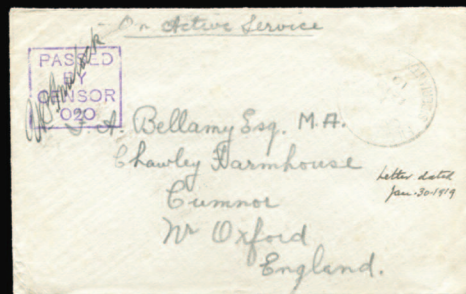 On Active Service
PASSED
BY
CENSOR
020
A. Bellamy Esq. M.A.
Chawley Farmhouse
Cumnor
Nr Oxford
England.
Letter dated
Jan. 30. 1919